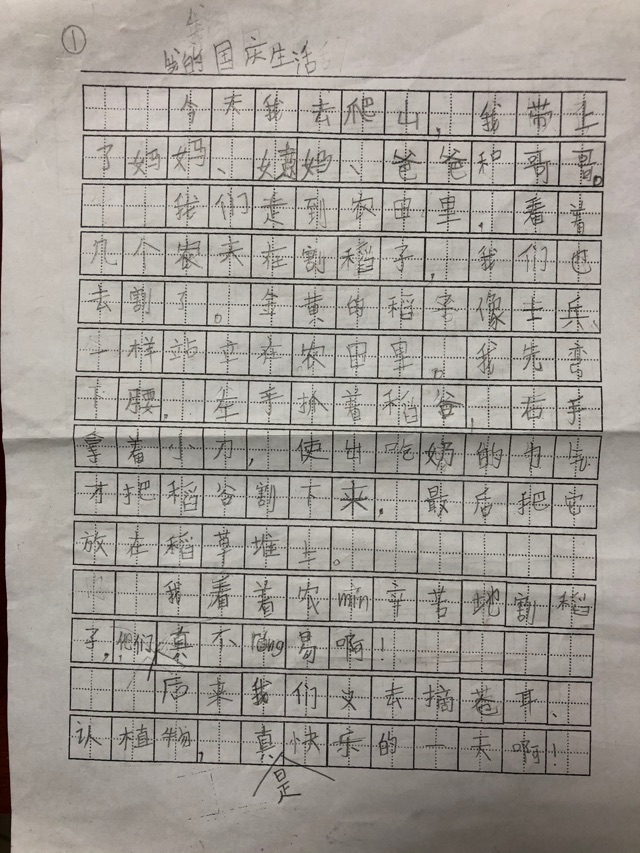 ①
我的国庆生活
今天我去爬山,我带上
了妈妈、姨妈、爸爸和哥哥。
我们走到农田里,看着
几个农夫在割稻子,我们也
去割了。金黄的稻子像士兵
一样站立在农田里。我先弯
下腰,左手抓着稻谷,右手
拿着小刀,使出吃奶的力气
才把稻谷割下来,最后把它
放在稻草堆上。
我看着农min辛苦地割稻
子,他们真不róng易啊!
后来我们又去摘苍耳、
认植物,真是快乐的一天啊!